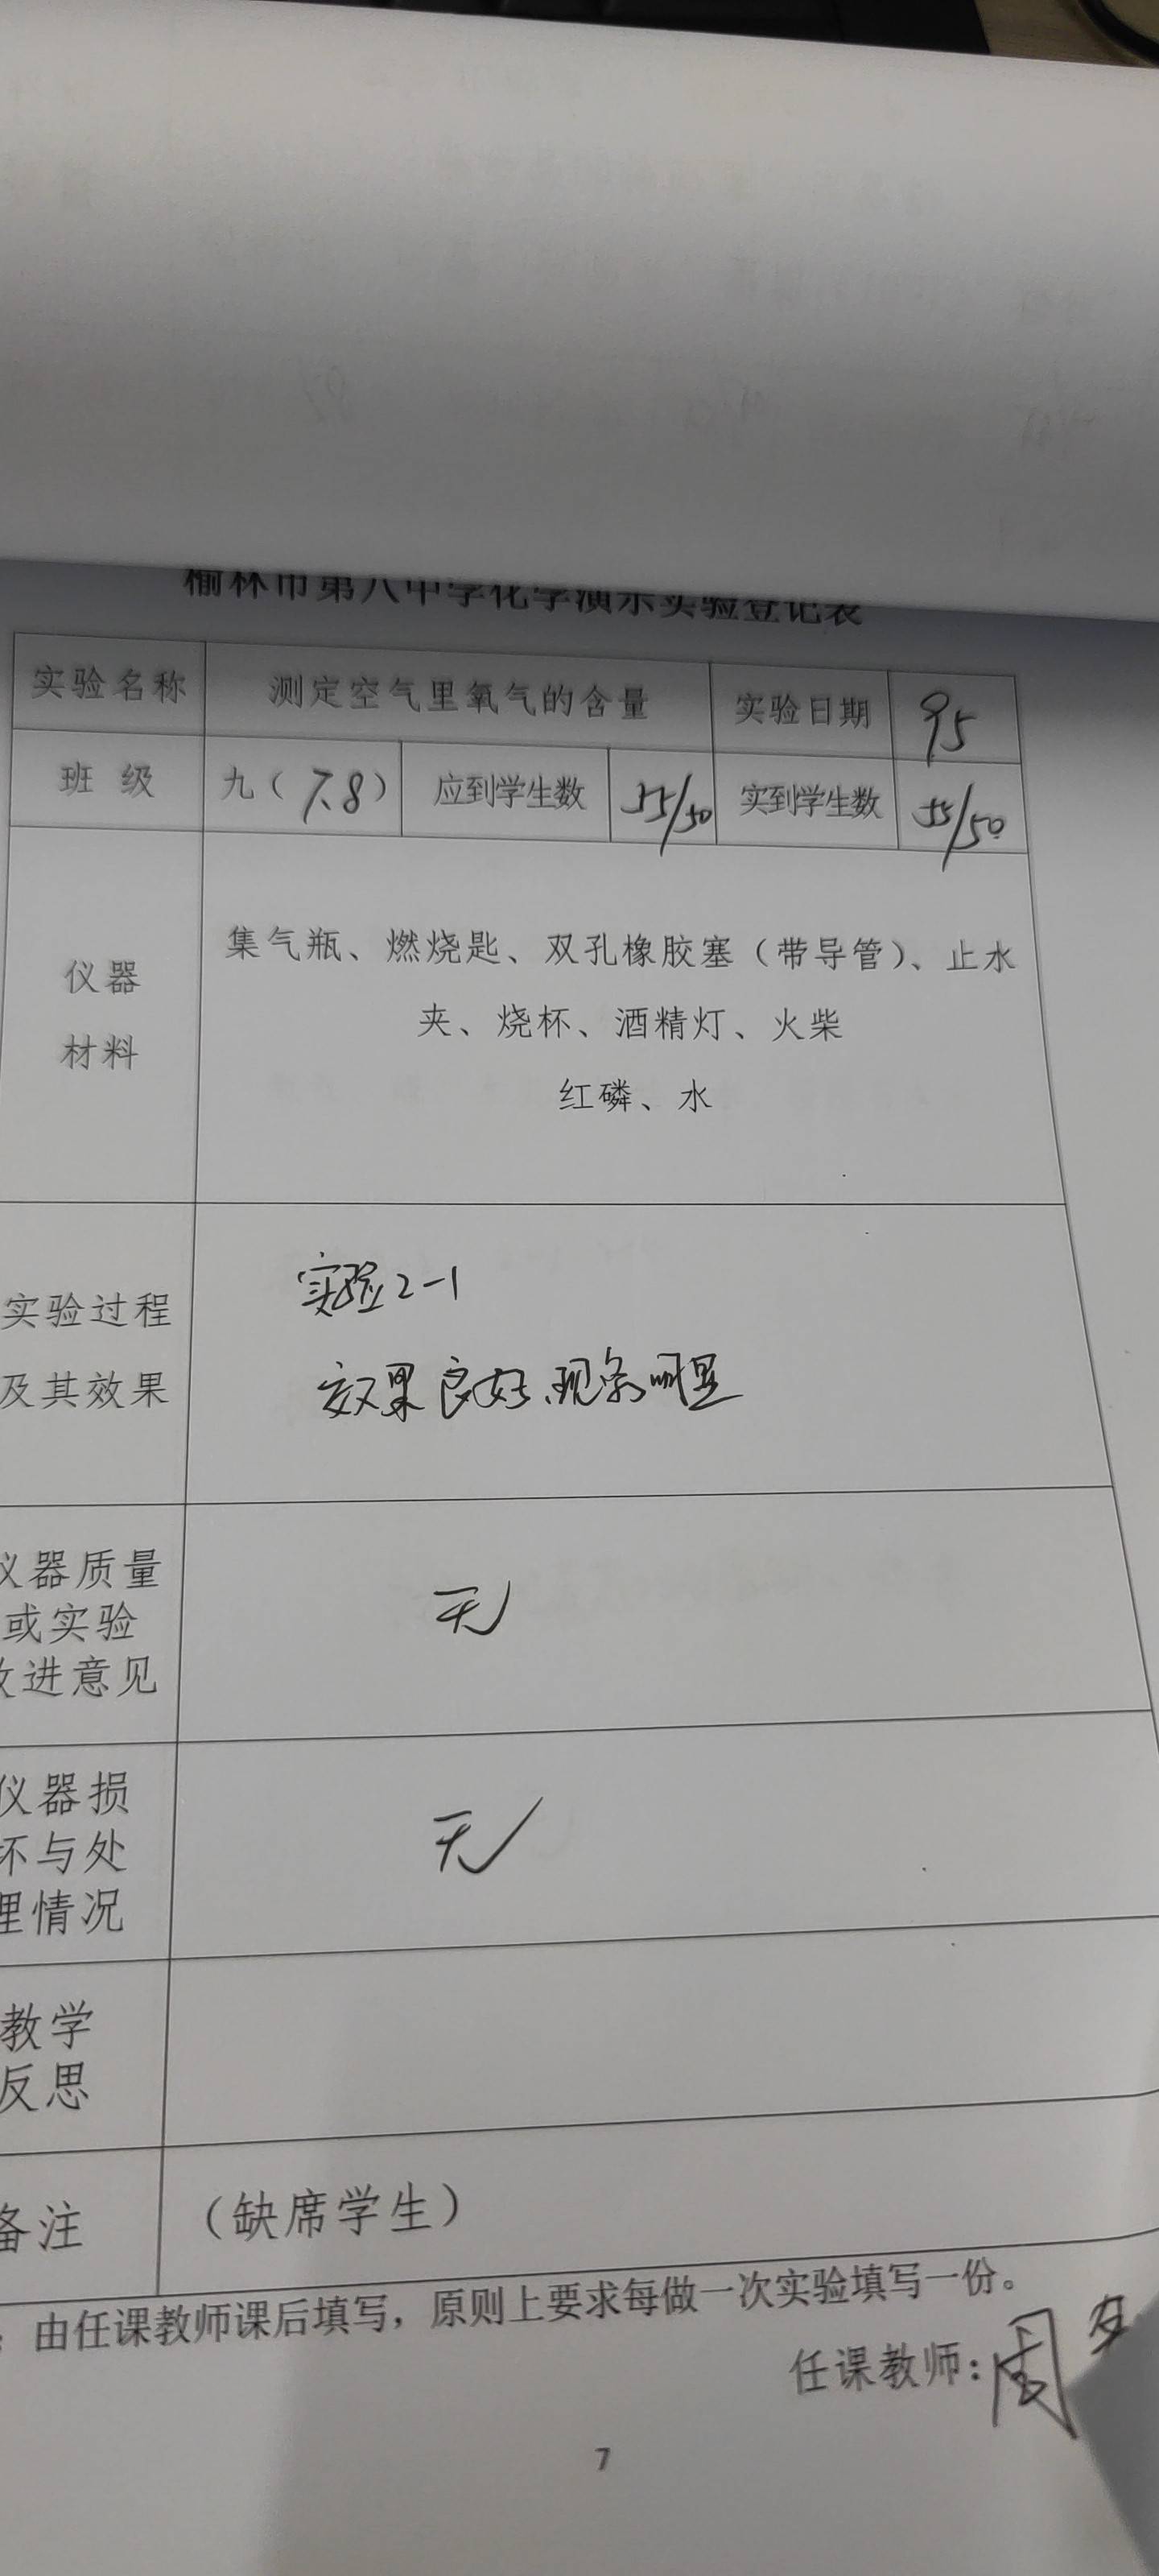 榆林市第八中学化学演示实验登记表
实验名称 测定空气里氧气的含量 实验日期 9.5
班 级 九（7.8） 应到学生数 55/50 实到学生数 55/50
仪器
材料
集气瓶、燃烧匙、双孔橡胶塞（带导管）、止水
夹、烧杯、酒精灯、火柴
红磷、水
实验过程
及其效果
实验2-1
效果良好、现象明显
仪器质量
或实验
改进意见
无
仪器损
坏与处
理情况
无
教学
反思
备注 （缺席学生）
：由任课教师课后填写，原则上要求每做一次实验填写一份。
任课教师：周
7